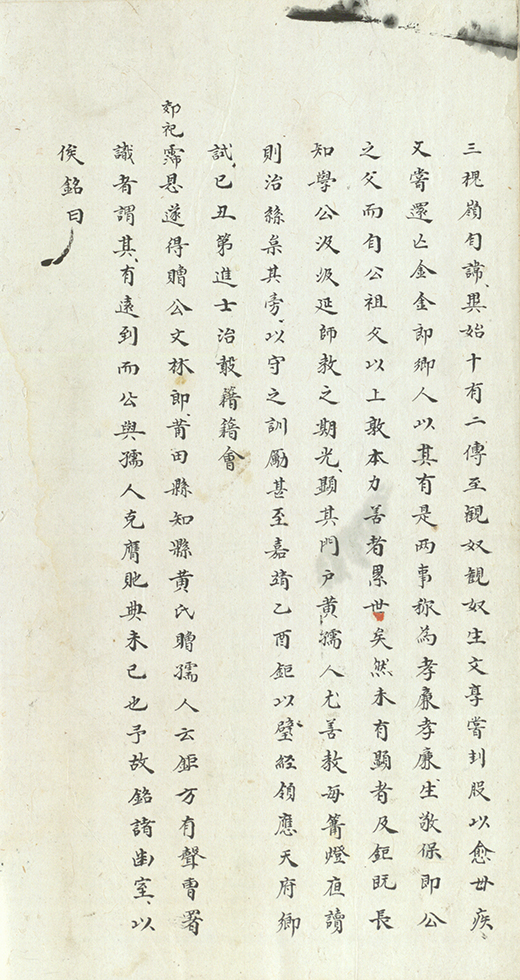 三視嶺自諱異始十有二傳至觀奴觀奴生文享嘗刲股以愈母疾
又嘗還亡金金即鄉人以其有是两事称為孝廉孝廉生敬保即公
之父而自公祖父以上敦本力善者累世矣然未有顯者及鉅既長
知學公汲汲延師教之期光顯其門户黄孺人尤善教每篝燈夜讀
則治絲枲其旁以守之訓勵甚至嘉靖乙酉鉅以璧經領應天府鄉
試己丑第進士治最籍籍會
郊祀霈恩遂得贈公文林郎莆田縣知縣黄氏贈孺人云鉅方有聲曹署
識者謂其有遠到而公與孺人克膺貤典未已也予故銘諸幽室以
俟銘曰